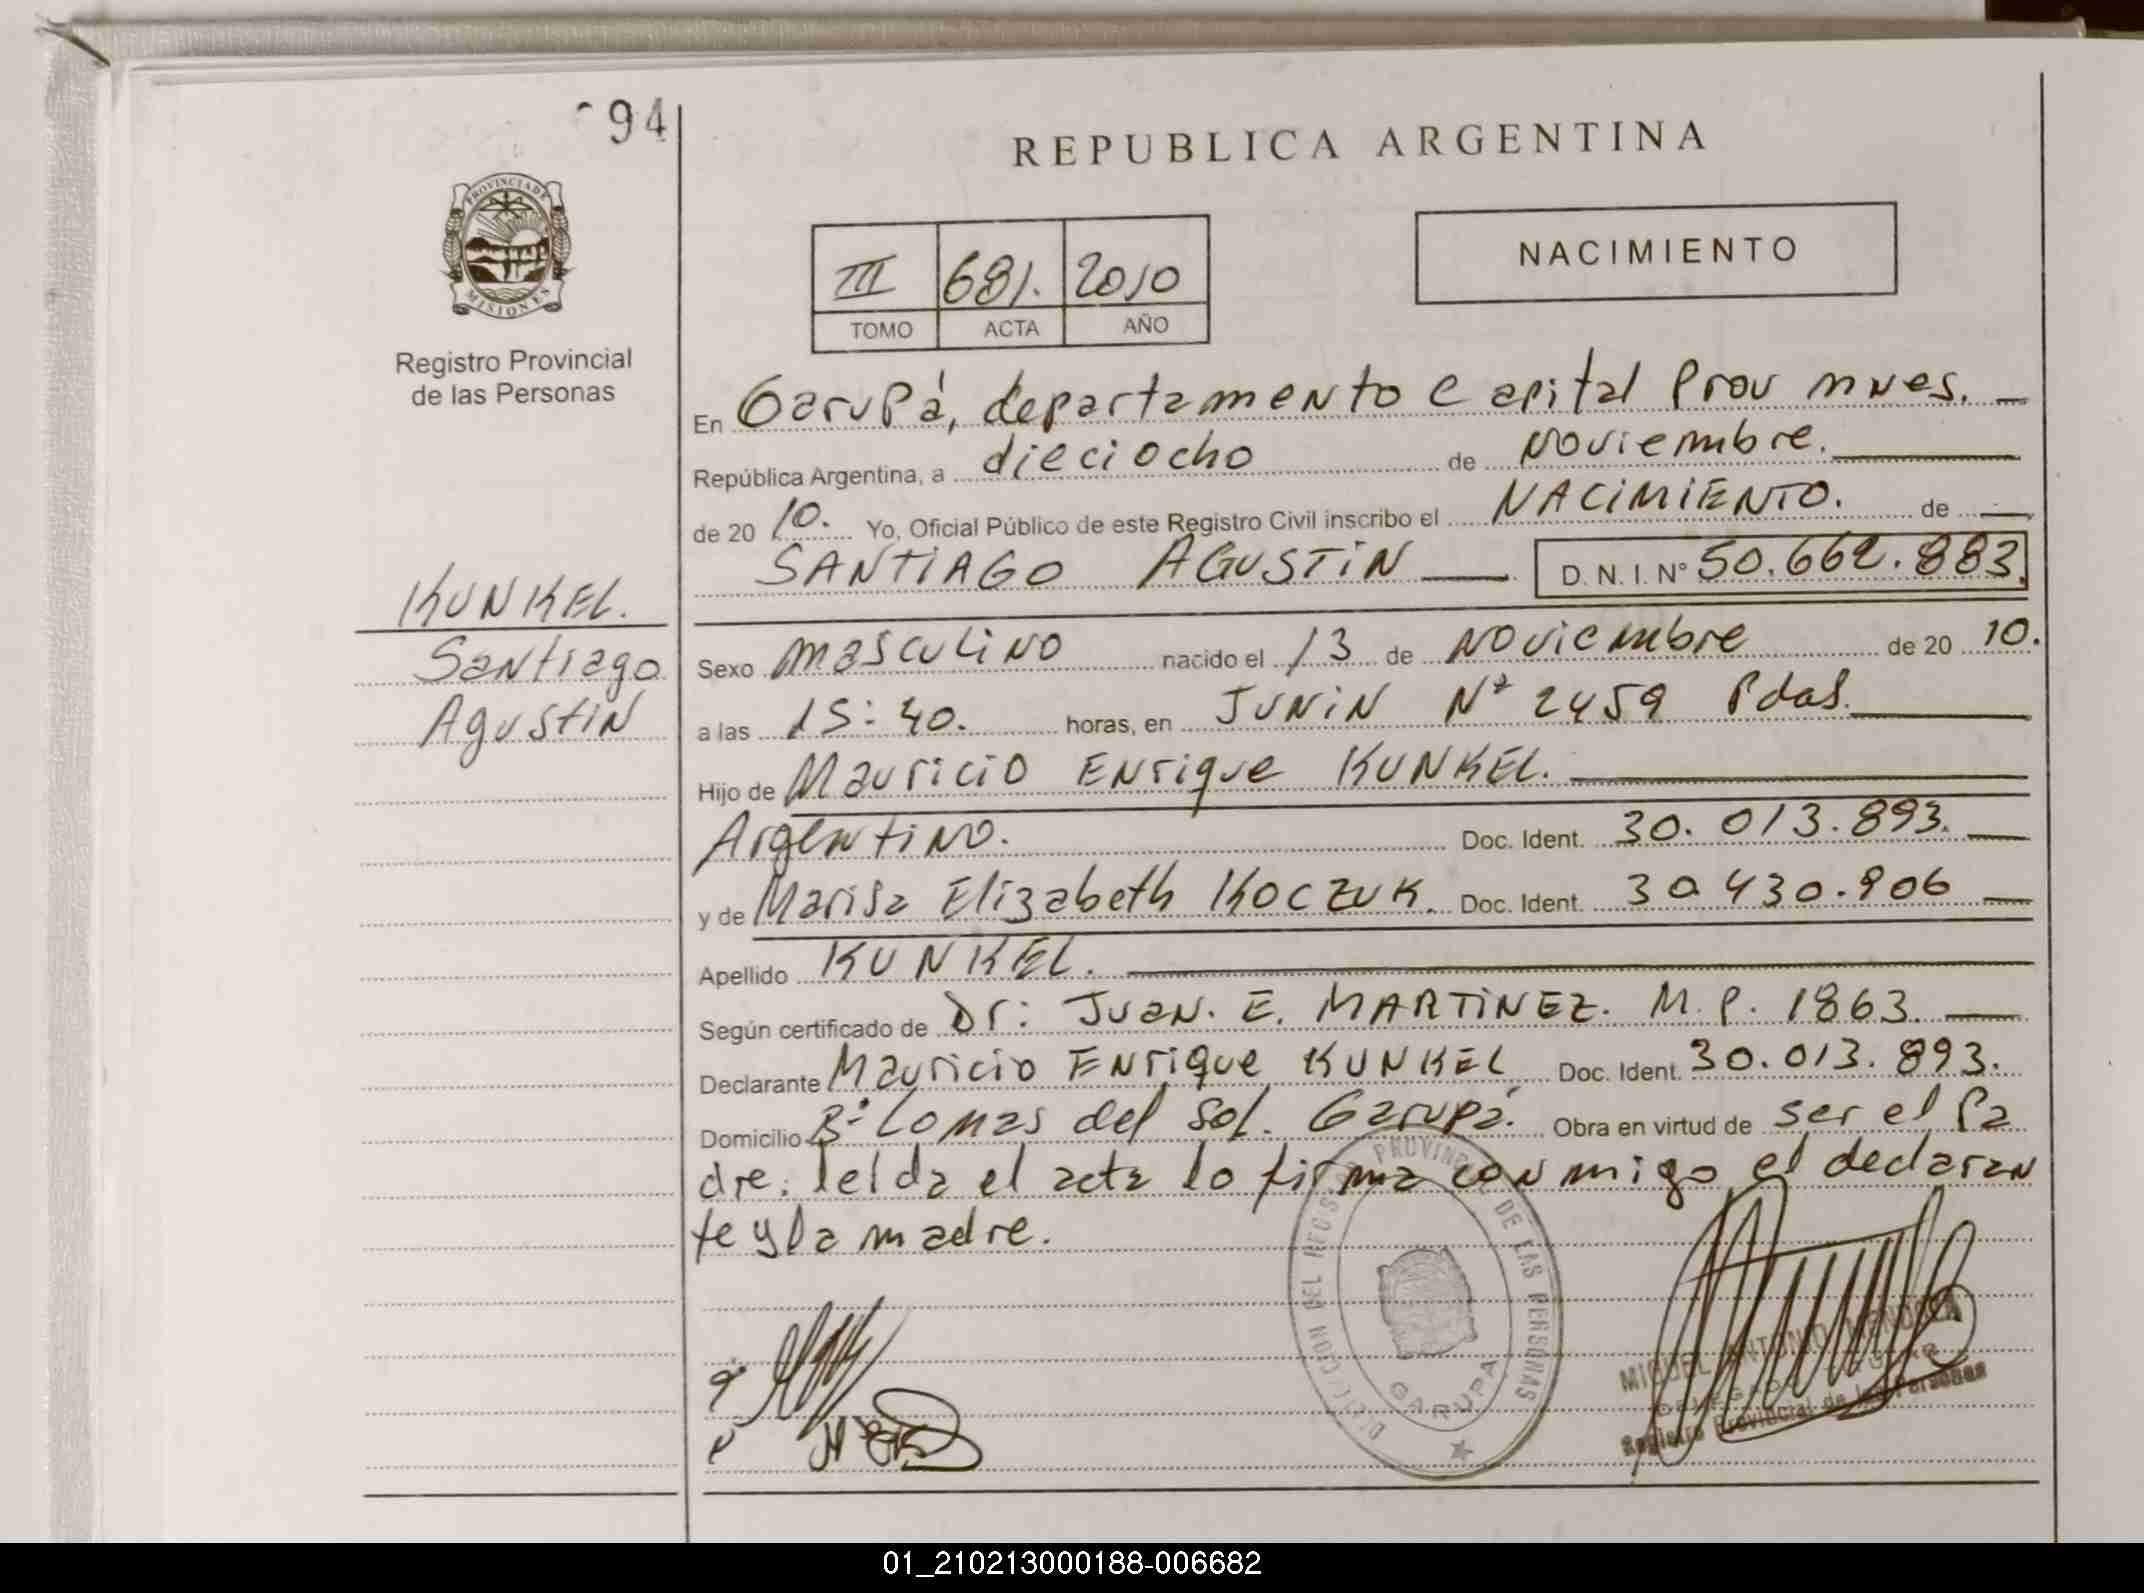 94
PROVINCIA DE
MISIONES
Registro Provincial
de las Personas
KUNKEL.
Santiago
Agustin
REPUBLICA ARGENTINA
III 681. 2010
TOMO ACTA AÑO
NACIMIENTO
En Garupá, departamento Capital Prov mnes.
República Argentina, a dieciocho de Noviembre.
de 20 10. Yo, Oficial Público de este Registro Civil inscribo el NACIMIENTO. de
SANTIAGO AGUSTIN D. N. I. Nº 50.662.883.
Sexo masculino nacido el 13 de Noviembre de 20 10.
a las 15:40. horas, en JUNIN Nº 2459 Pdas.
Hijo de Mauricio Enrique KUNKEL.
Argentino. Doc. Ident. 30.013.893.
y de Marisa Elizabeth KOCZUK. Doc. Ident. 30430.906
Apellido KUNKEL.
Según certificado de Dr: Juan. E. MARTINEZ. M.P. 1863.
Declarante Mauricio Enrique KUNKEL Doc. Ident. 30.013.893.
Domicilio Bº Lomas del Sol. Garupá. Obra en virtud de ser el Pa
dre. leida el acta lo firma conmigo el declaran
te y la madre.
DIRECCION DEL REGISTRO PROVINCIAL DE LAS PERSONAS
GARUPA
MIGUEL ANTONIO MENDOZA
Registro Provincial de las Personas
01_210213000188-006682